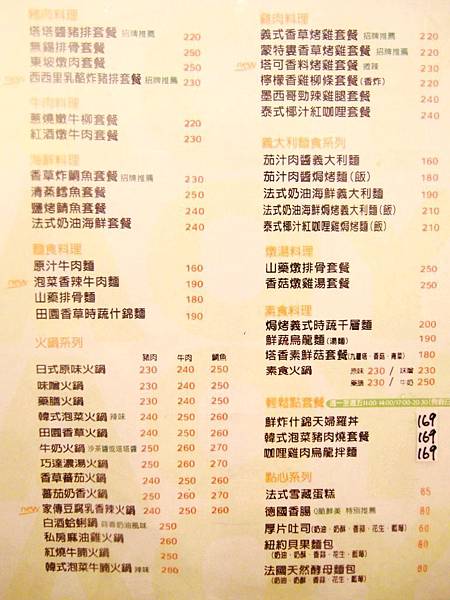 豬肉料理
塔塔醬豬排套餐 招牌推薦 220
無錫排骨套餐 230
東坡燉肉套餐 220
new 西西里乳酪炸豬排套餐 招牌推薦 230
牛肉料理
蔥燒嫩牛柳套餐 220
紅酒燉牛肉套餐 230
海鮮料理
香草炸鯛魚套餐 招牌推薦 230
清蒸鱈魚套餐 250
鹽烤鯖魚套餐 240
法式奶油海鮮套餐 240
麵食料理
原汁牛肉麵 160
new 泡菜香辣牛肉麵 190
山藥排骨麵 180
田園香草時蔬什錦麵 190
火鍋系列 豬肉 牛肉 鯛魚
日式原味火鍋 230 240 250
味噌火鍋 230 240 250
藥膳火鍋 230 240 250
韓式泡菜火鍋 辣味 240 250 260
田園香草火鍋 240 250 260
牛奶火鍋 240 250 260
巧達濃湯火鍋 250 260 270
香草蕃茄火鍋 250 260 270
蕃茄奶香火鍋 250 260 270
new 家傳豆腐乳香辣火鍋 240 250 260
白酒蛤蜊鍋 蒜香奶油風味 250
私房麻油雞火鍋 260
紅燒牛腩火鍋 250
韓式泡菜牛腩火鍋 辣味 260
雞肉料理
義式香草烤雞套餐 招牌推薦 220
蒙特婁香草烤雞套餐 220
new 塔可香料烤雞套餐 微辣 230
檸檬香雞柳條套餐(香炸) 230
墨西哥勁辣雞腿套餐 240
泰式椰汁紅咖哩套餐 240
義大利麵食系列
茄汁肉醬義大利麵 160
茄汁肉醬焗烤麵(飯) 180
法式奶油海鮮義大利麵 190
法式奶油海鮮焗烤義大利麵(飯) 210
泰式椰汁紅咖哩雞焗烤麵(飯) 210
燉湯料理
山藥燉排骨套餐 250
香菇燉雞湯套餐 250
素食料理
焗烤義式時蔬千層麵 200
鮮蔬烏龍麵(湯麵) 190
塔香素鮮菇套餐(九層塔、香菇、青菜) 180
素食火鍋 原味 230 / 味噌 230
藥膳 230 / 牛奶 250
輕鬆點套餐 週一至週五11:00-14:00/17:00-20:30
鮮炸什錦天婦羅丼 169
韓式泡菜豬肉燒套餐 169
咖哩雞肉烏龍拌麵 169
點心系列
法式雪藏蛋糕 65
德國香腸 特別推薦 60
厚片吐司(奶油、奶酥、香蒜、花生、藍莓) 60
紐約貝果麵包 80
(奶油、奶酥、香蒜、花生、藍莓)
法國天然酵母麵包 80
(奶油、奶酥、香蒜、花生、藍莓)